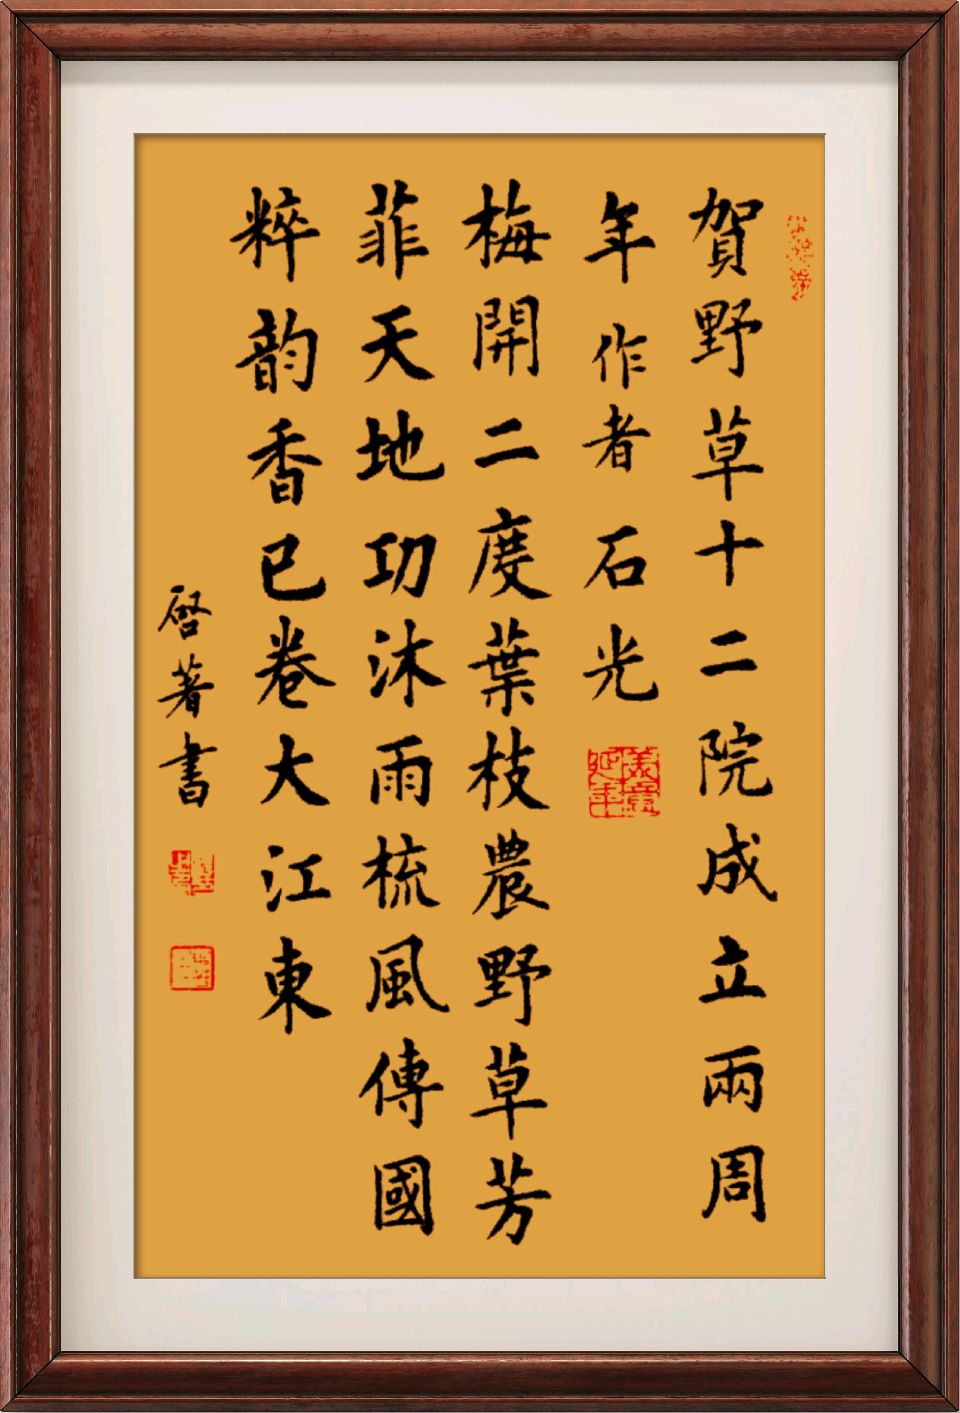 賀野草十二院成立兩周
年 作者 石光
梅開二度葉枝農野草芳
菲天地功沐雨梳風傳國
粹韵香已卷大江東
啓著書